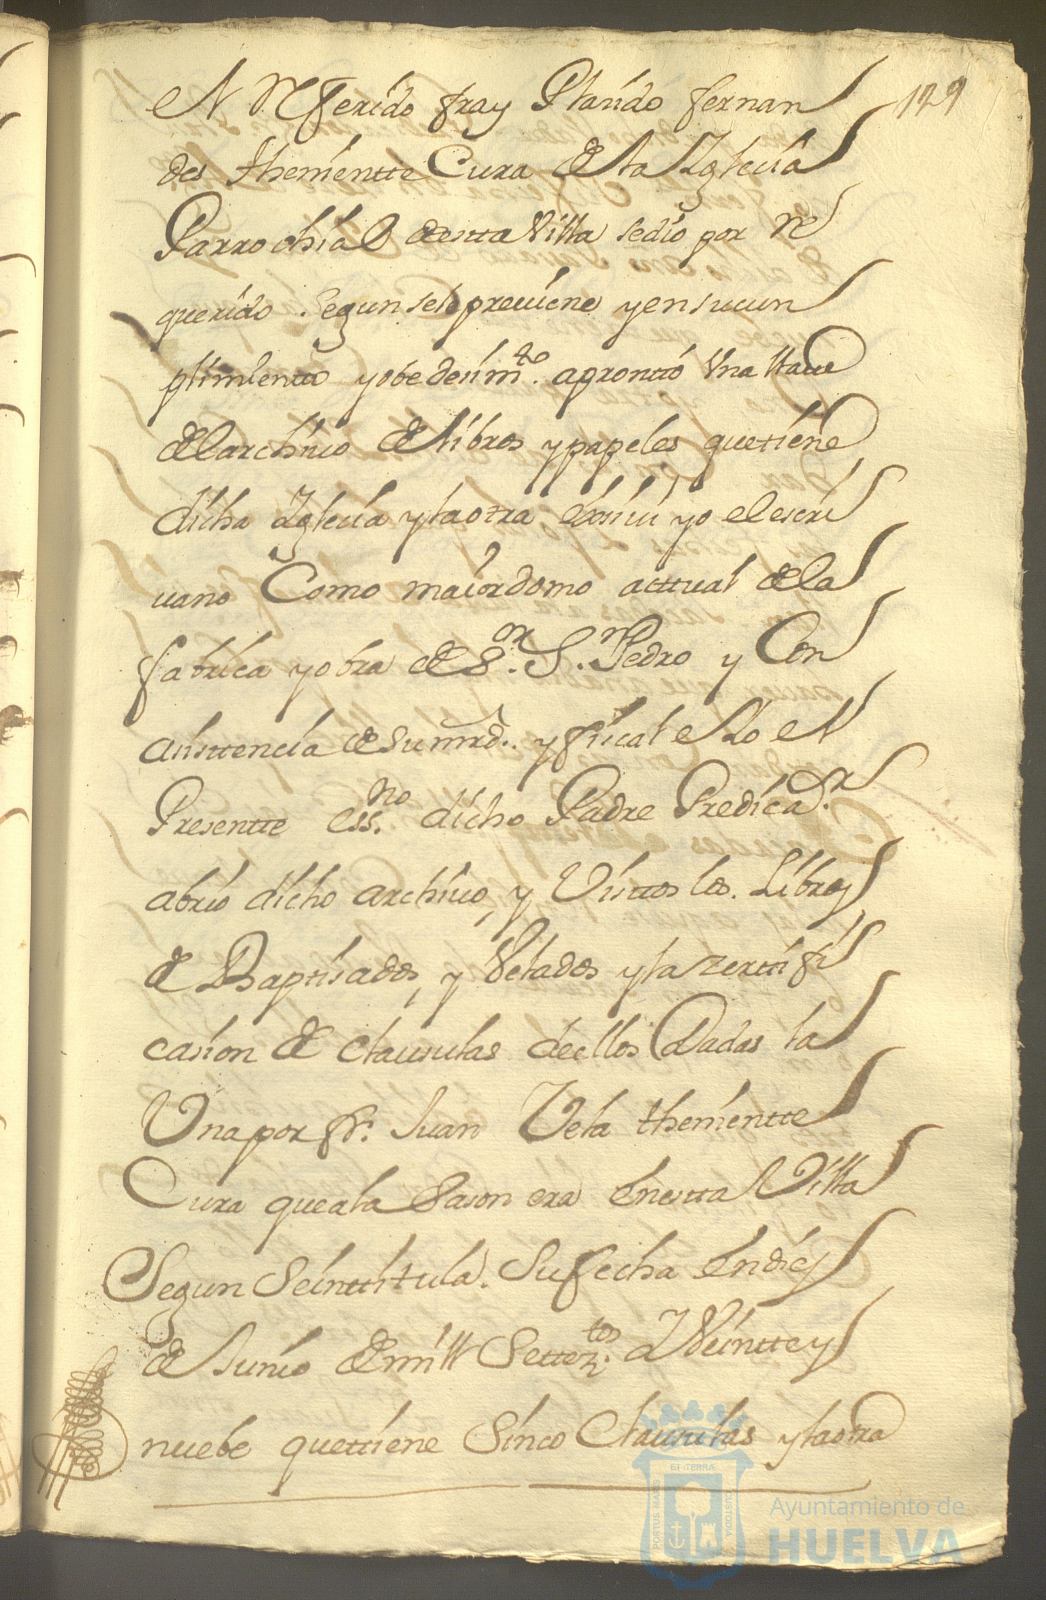 el Refferido fray Plasido fernan 129
des theminttte Cura de la Iglecia
Parrochial de esta Villa sedio por Re
querido segun sele previene y en su cun
plimiento y obedesim.to apronto Una llaue
del archiuo de libros y papeles que tiene
dicha Iglecia y la otra exsiui yo el escri
uano Como maiordomo acttual de la
fabrica y obra de S.or S.n Pedro y Con
asisttencia de su mrd. y fiscal e Yo el
Presentte ess.no dicho Padre Predica.or
abrio dicho archiuo, y Vistos los. Libros
de Baptisados, y Velados y la zertifi
casion de clausulas de ellos Dadas la
Una por fr. Juan Vela thenientte
Cura que a la Sason era En esta Villa
Segun Se intitula. Su fecha En dies
de Junio de mill Settez.tos Y Veintte y
nuebe que tiene Sinco Clausulas y la otra
Ayuntamiento de
HUELVA
PORTUS MARIS
ET TERRÆ
CUSTODIA